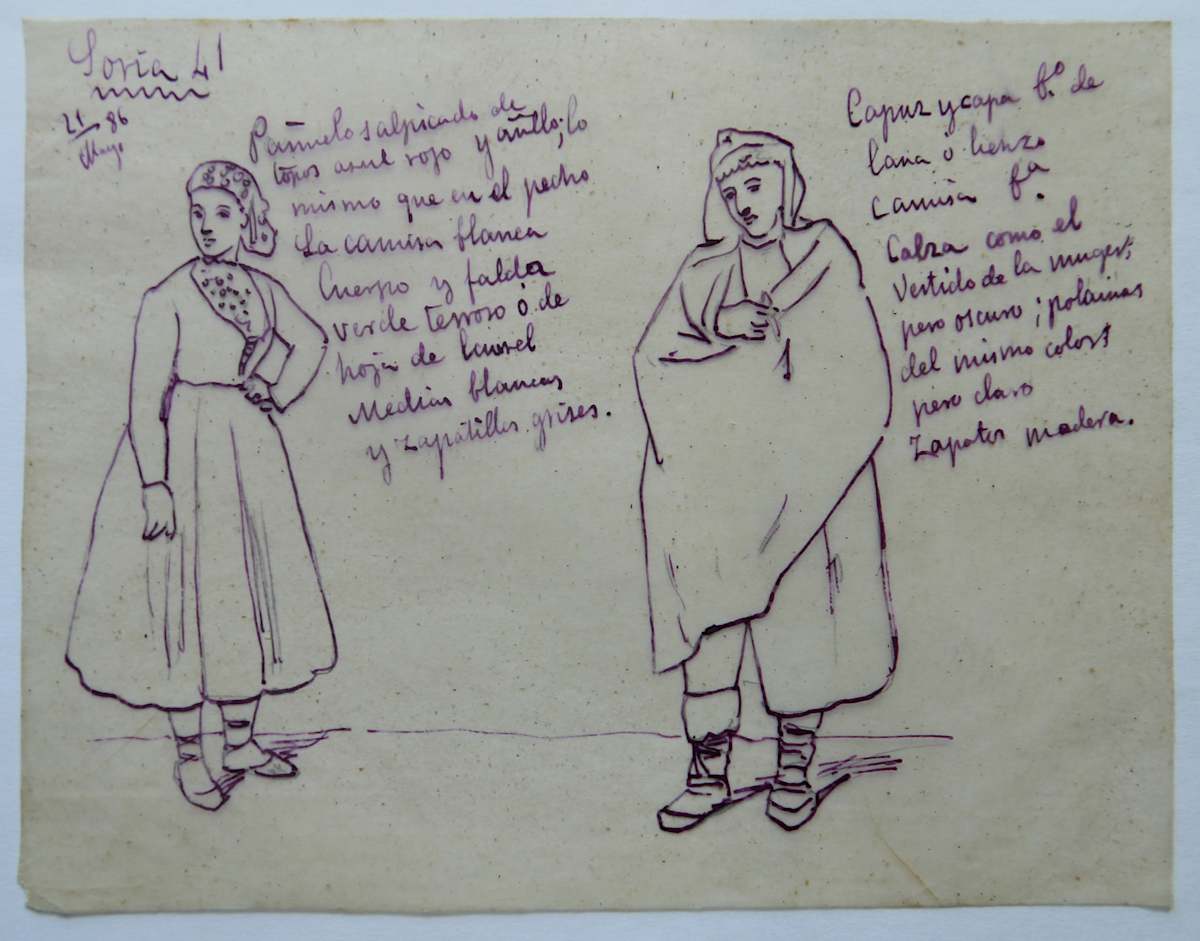 Soria 41
21 86
Mayo
Pañuelo salpicado de
topos azul rojo y añllo; lo
mismo que en el pecho
La camisa blanca
Cuerpo y falda
verde terroso ó de
hoja de laurel
Medias blancas
y zapatillas grises.
Capuz y capa b.º de
lana o lienzo
camisa fa.
Calza como el
vestido de la muger;
pero oscuro; polainas
del mismo color
pero claro
Zapatos madera.